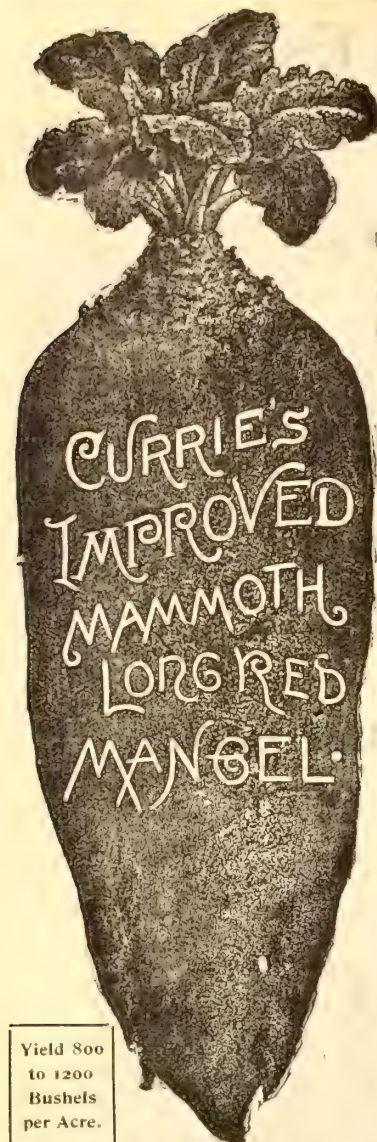 CURRIE'S
IMPROVED
MAMMOTH
LONG RED
MANGEL.
Yield 800
to 1200
Bushels
per Acre.